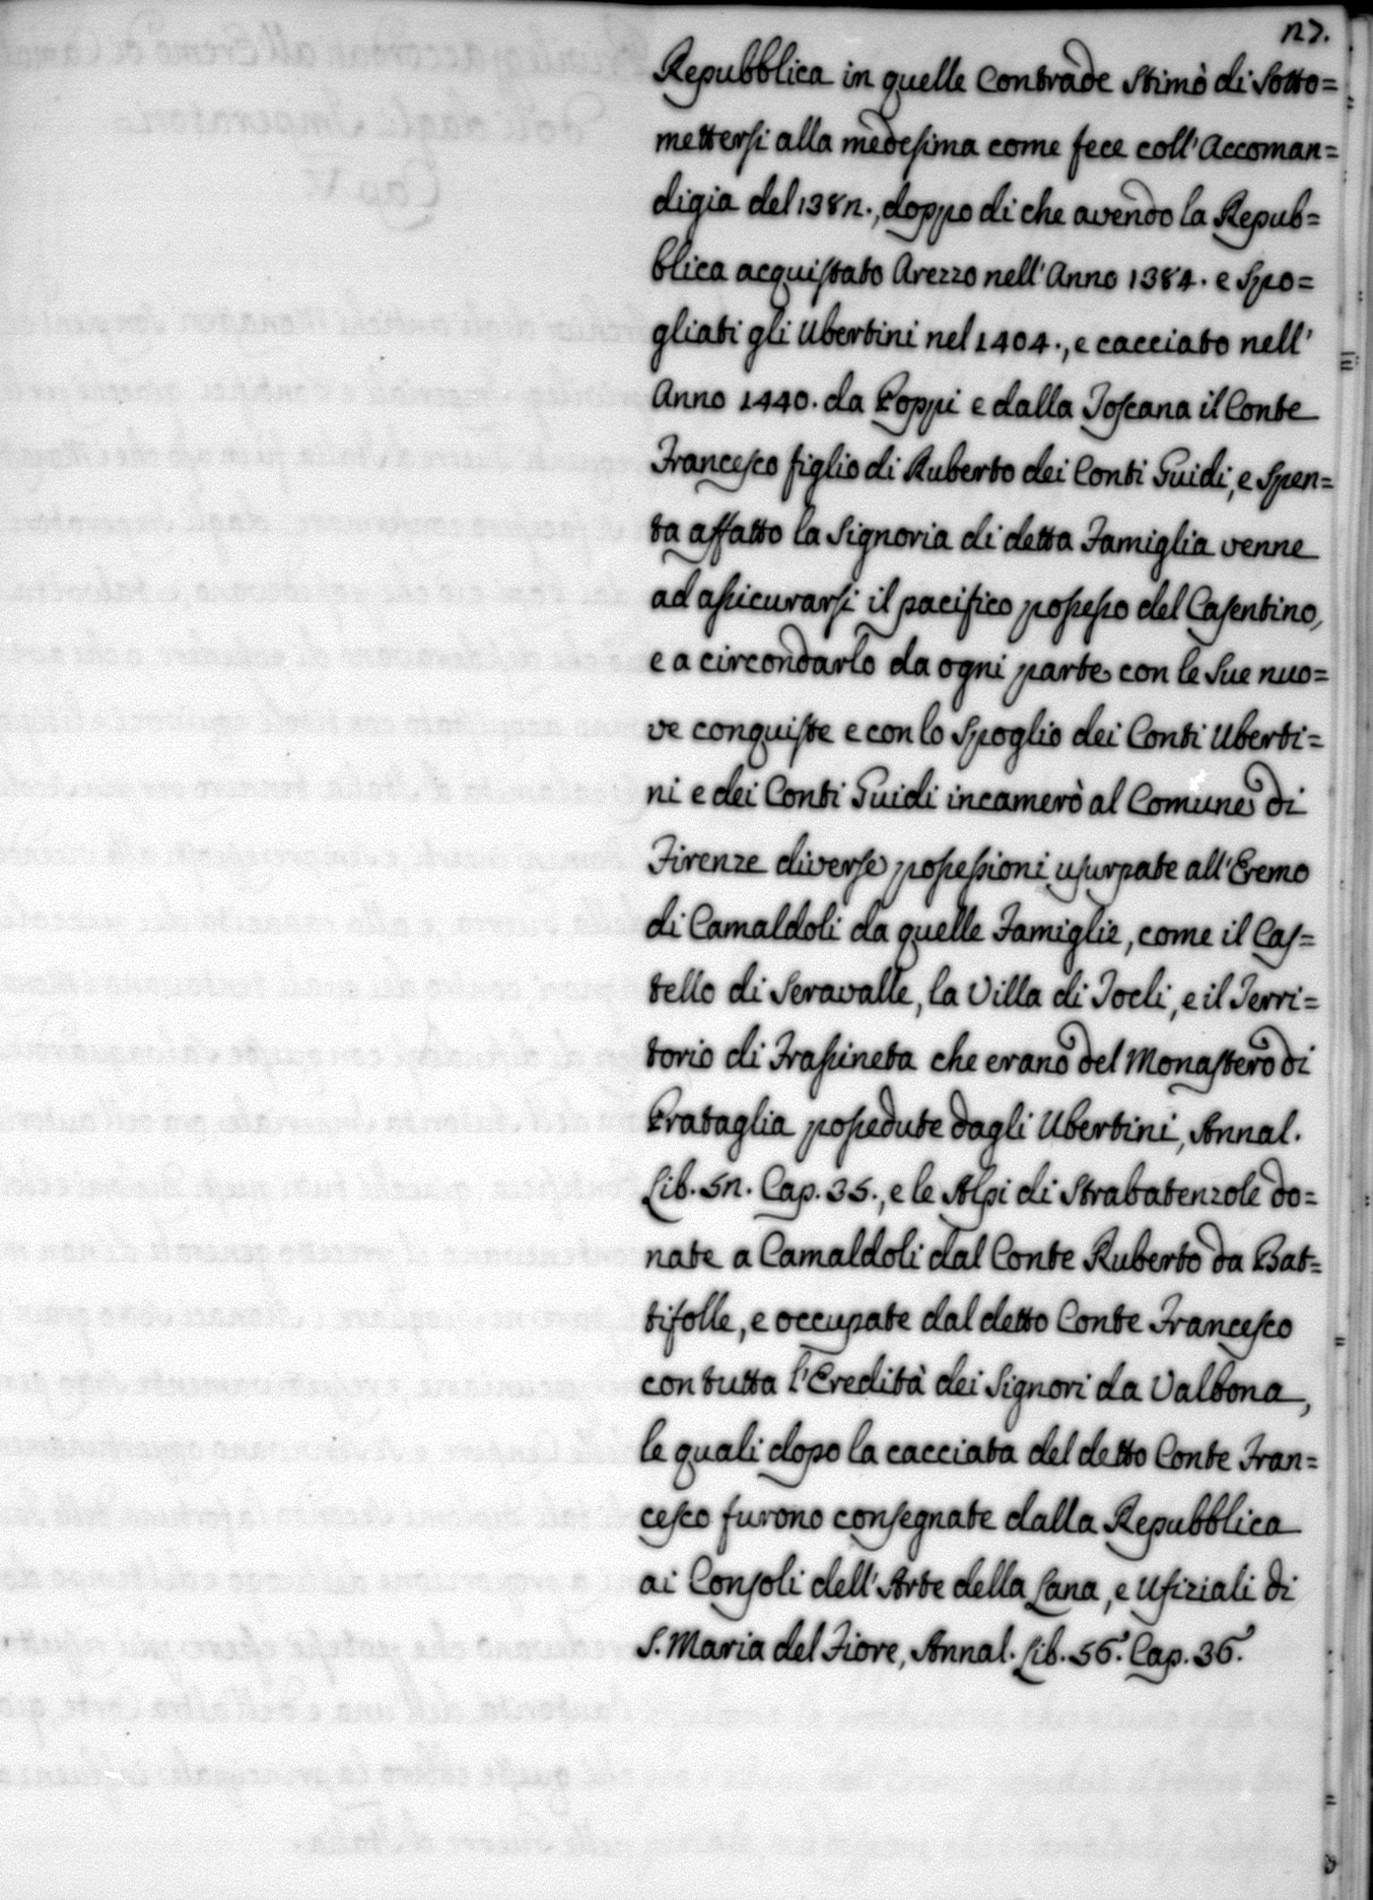 27.
Repubblica in quelle Contrade stimò di sotto=
mettersi alla medesima come fece coll' Accoman=
digia del 1382., doppo di che avendo la Repub=
blica acquistato Arezzo nell' Anno 1384. e spo=
gliati gli Ubertini nel 1404., e cacciato nell'
Anno 1440. da Poppi e dalla Toscana il Conte
Francesco figlio di Ruberto dei Conti Guidi, e spen=
ta affatto la Signoria di detta Famiglia venne
ad assicurarsi il pacifico possesso del Casentino,
e a circondarlo da ogni parte con le sue nuo=
ve conquiste e con lo spoglio dei Conti Uberti=
ni e dei Conti Guidi incamerò al Comune di
Firenze diverse possessioni usurpate all' Eremo
di Camaldoli da quelle Famiglie, come il Cas=
tello di Seravalle, la Villa di Tocli, e il Terri=
torio di Frassineta che erano del Monastero di
Prataglia possedute dagli Ubertini, Annal.
Lib. 52. Cap. 35., e le Alpi di Strabatenzole do=
nate a Camaldoli dal Conte Ruberto da Bat=
tifolle, e occupate dal detto Conte Francesco
con tutta l'Eredità dei Signori da Valbona,
le quali dopo la cacciata del detto Conte Fran=
cesco furono consegnate dalla Repubblica
ai Consoli dell' Arte della Lana, e Ufiziali di
S. Maria del Fiore, Annal. Lib. 56. Cap. 36.